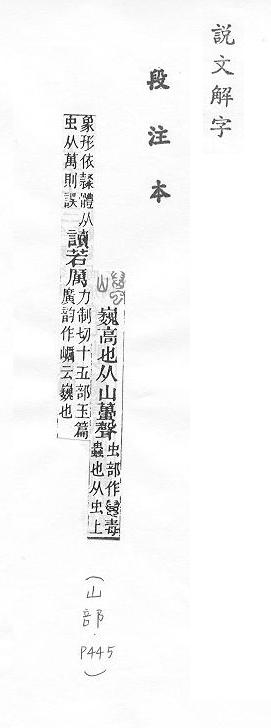 說文解字
段注本
巍高也从山蠆聲
虫部作毒
蟲也从虫上
象形依隸體从
虫从萬則誤
讀若厲
力制切十五部玉篇
廣韵作云巍也
（山部．P445）